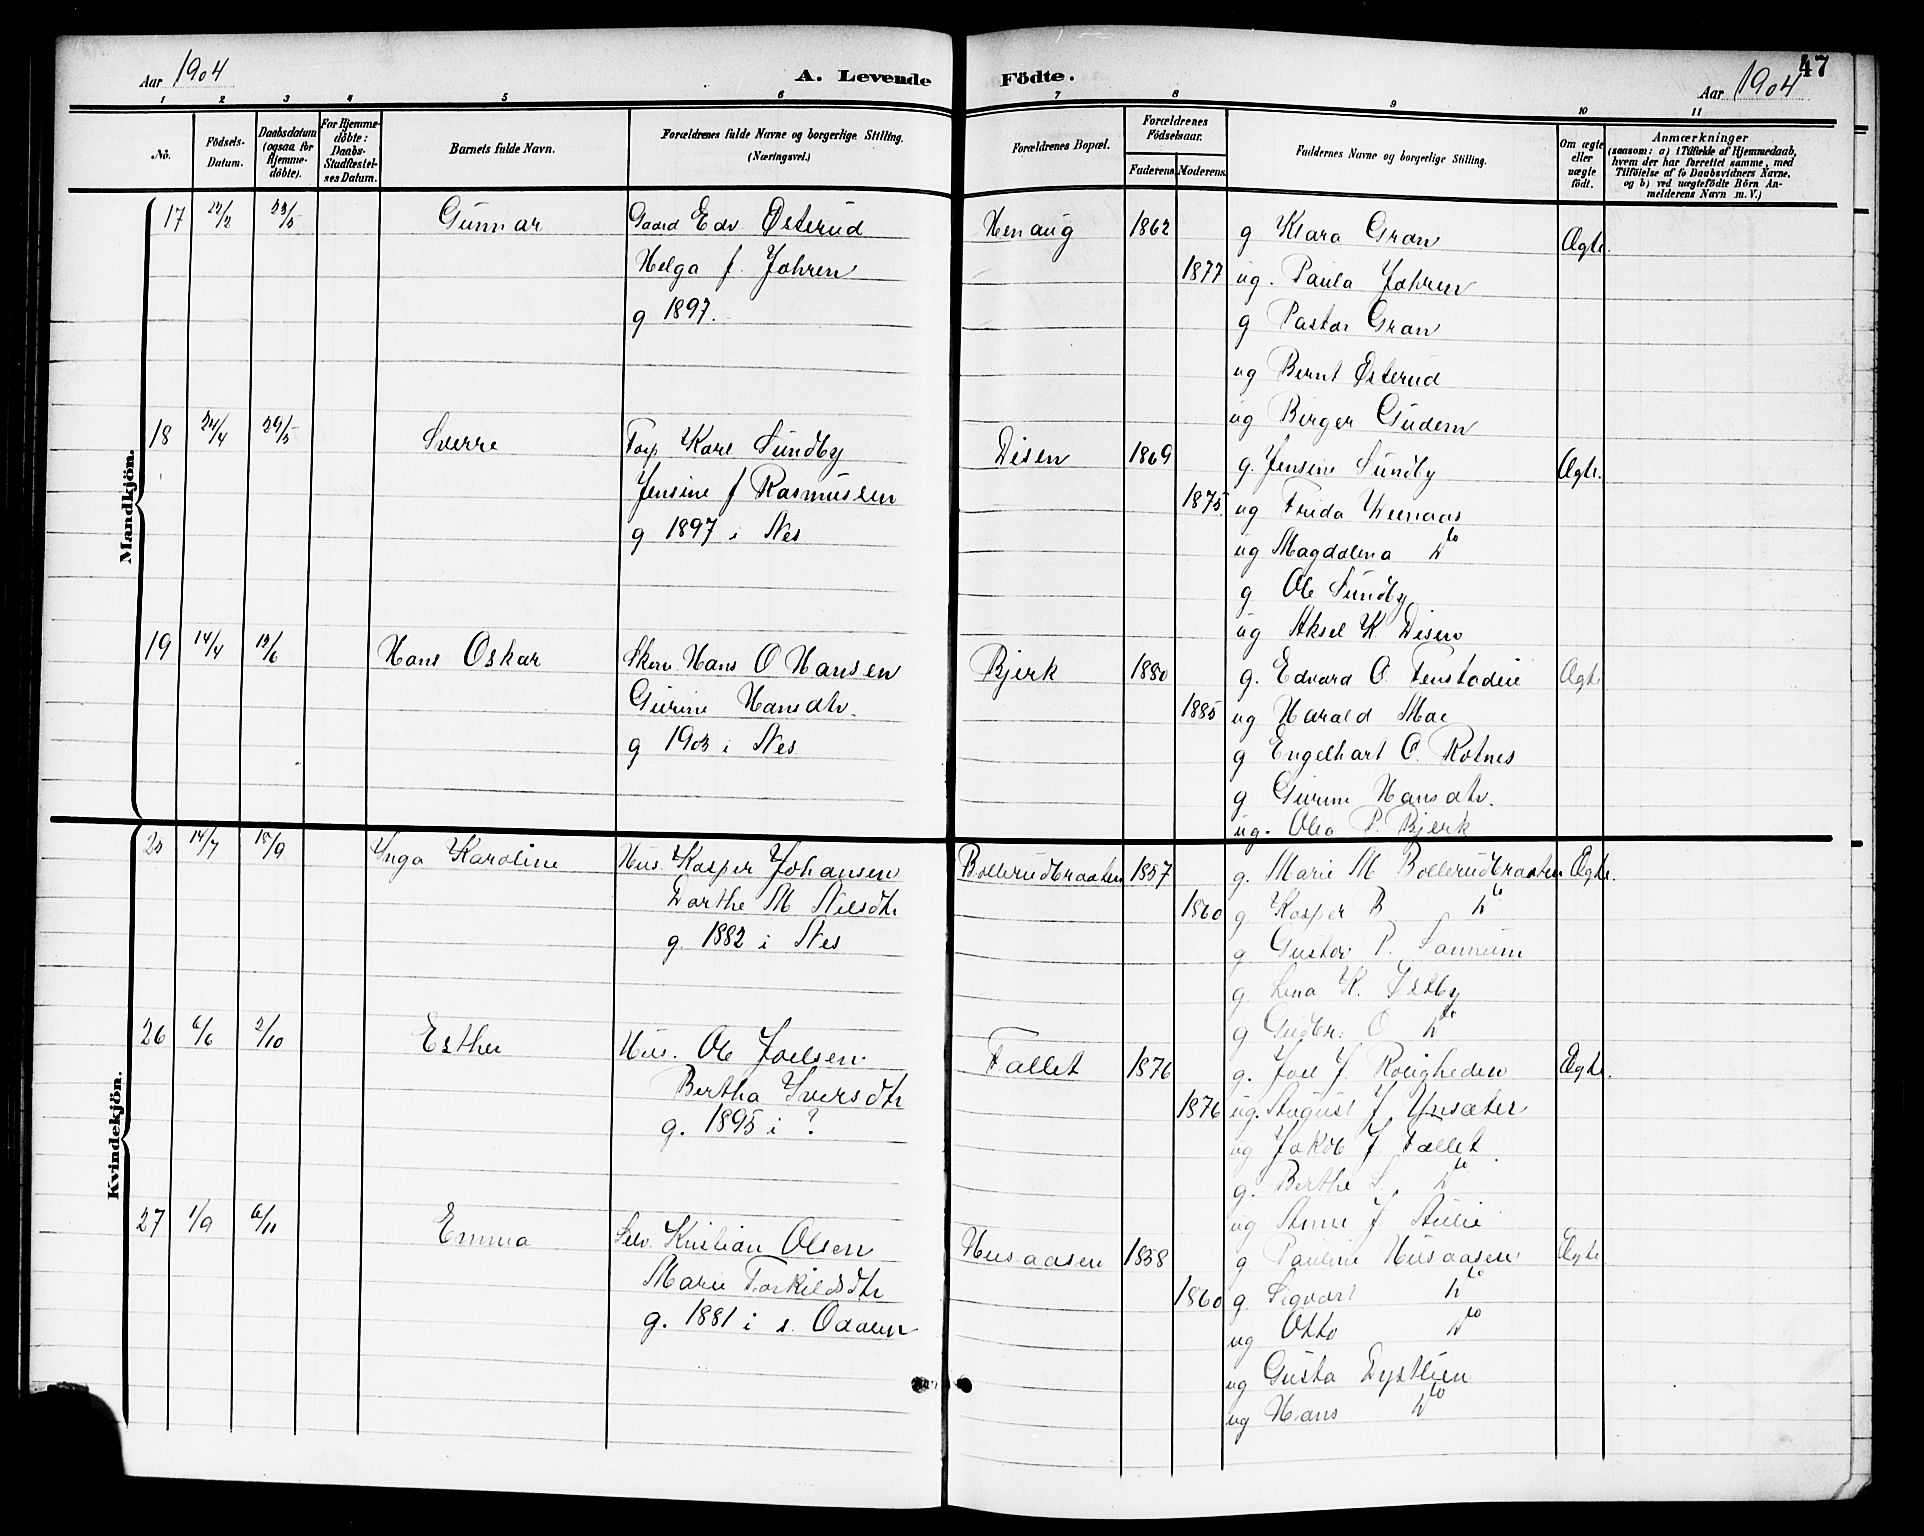 47
Aar 1904 A. Levende Födte. Aar 1904
1 2 3 4 5 6 7 8 9 10 11
No. Födsels-Datum. Daabsdatum (ogsaa for Hjemme-döbte). For Hjemme-döbte: Daabs-Stadfæstel-ses Datum. Barnets fulde Navn. Forældrenes fulde Navne og borgerlige Stilling. (Næringsvei.) Forældrenes Bopæl. Forældrenes Födselsaar. Faderens Moderens. Faddernes Navne og borgerlige Stilling. Om ægte eller uægte födt. Anmærkninger (saasom: a) i Tilfælde af Hjemmedaab, hvem der har forrettet samme, med Tilföielse af to Daabsvidners Navne, og b) ved uægtefödte Börn An-melderens Navn m. V.)
Mandkjön.
17 22/2 23/5 Gunnar Gaard Edv Østerud Henaug 1862 g Klara Gran Ægte.
Helga f. Johren 1877 ug. Paula Johren
g 1897. g Pastor Gran
ug Bernt Østerud
ug Birger Gudem
18 24/4 29/5 Sverre Forp Karl Sundby Disen 1869 g. Jensine Sundby Ægte.
Jensine f Rasmussen 1875 ug Frida
g 1897 i Nes ug Magdalena Do
g Ole Sundby
ug Aksel K. Disen
19 14/4 12/6 Hans Oskar Skov. Hans O Hansen Bjerk 1880 g. Edvard O. Ægte
Gurine Hansdtr. 1885 ug Harald Moe
g 1903 i Nes g Engelhart O. Rotnes
g Gurine Hansdtr.
ug. Olea P. Bjerk
Kvindekjön.
25 14/7 18/9 Inga Karoline Hus. Kasper Johansen Bollerudbraaten 1857 g. Marie M Bollerudbraaten Ægte.
Dorthe M Nilsdtr 1860 g Kasper B Do
g. 1882 i Nes g Gustav P. Sannum
g Lena K. Østby
g Gudbr. O Do
26 6/6 2/10 Esther Hus. Ole Joelsen Fallet 1876 g. Joel J. Roligheden Ægte.
Bertha Iversdtr 1876 ug. August J
g. 1895 i ? ug Jakob J. Fallet
g. Berthe S. Do
ug Anne J.
27 1/9 6/11 Emma Selv. Kristian Olsen Husaasen 1858 g Pauline Husaasen Ægte
Marie Torkildsdtr 1860 g. Sigvart Do
g. 1881 i s. Odalen ug Otto Do
ug Gusta Dystlien
ug Hans Do